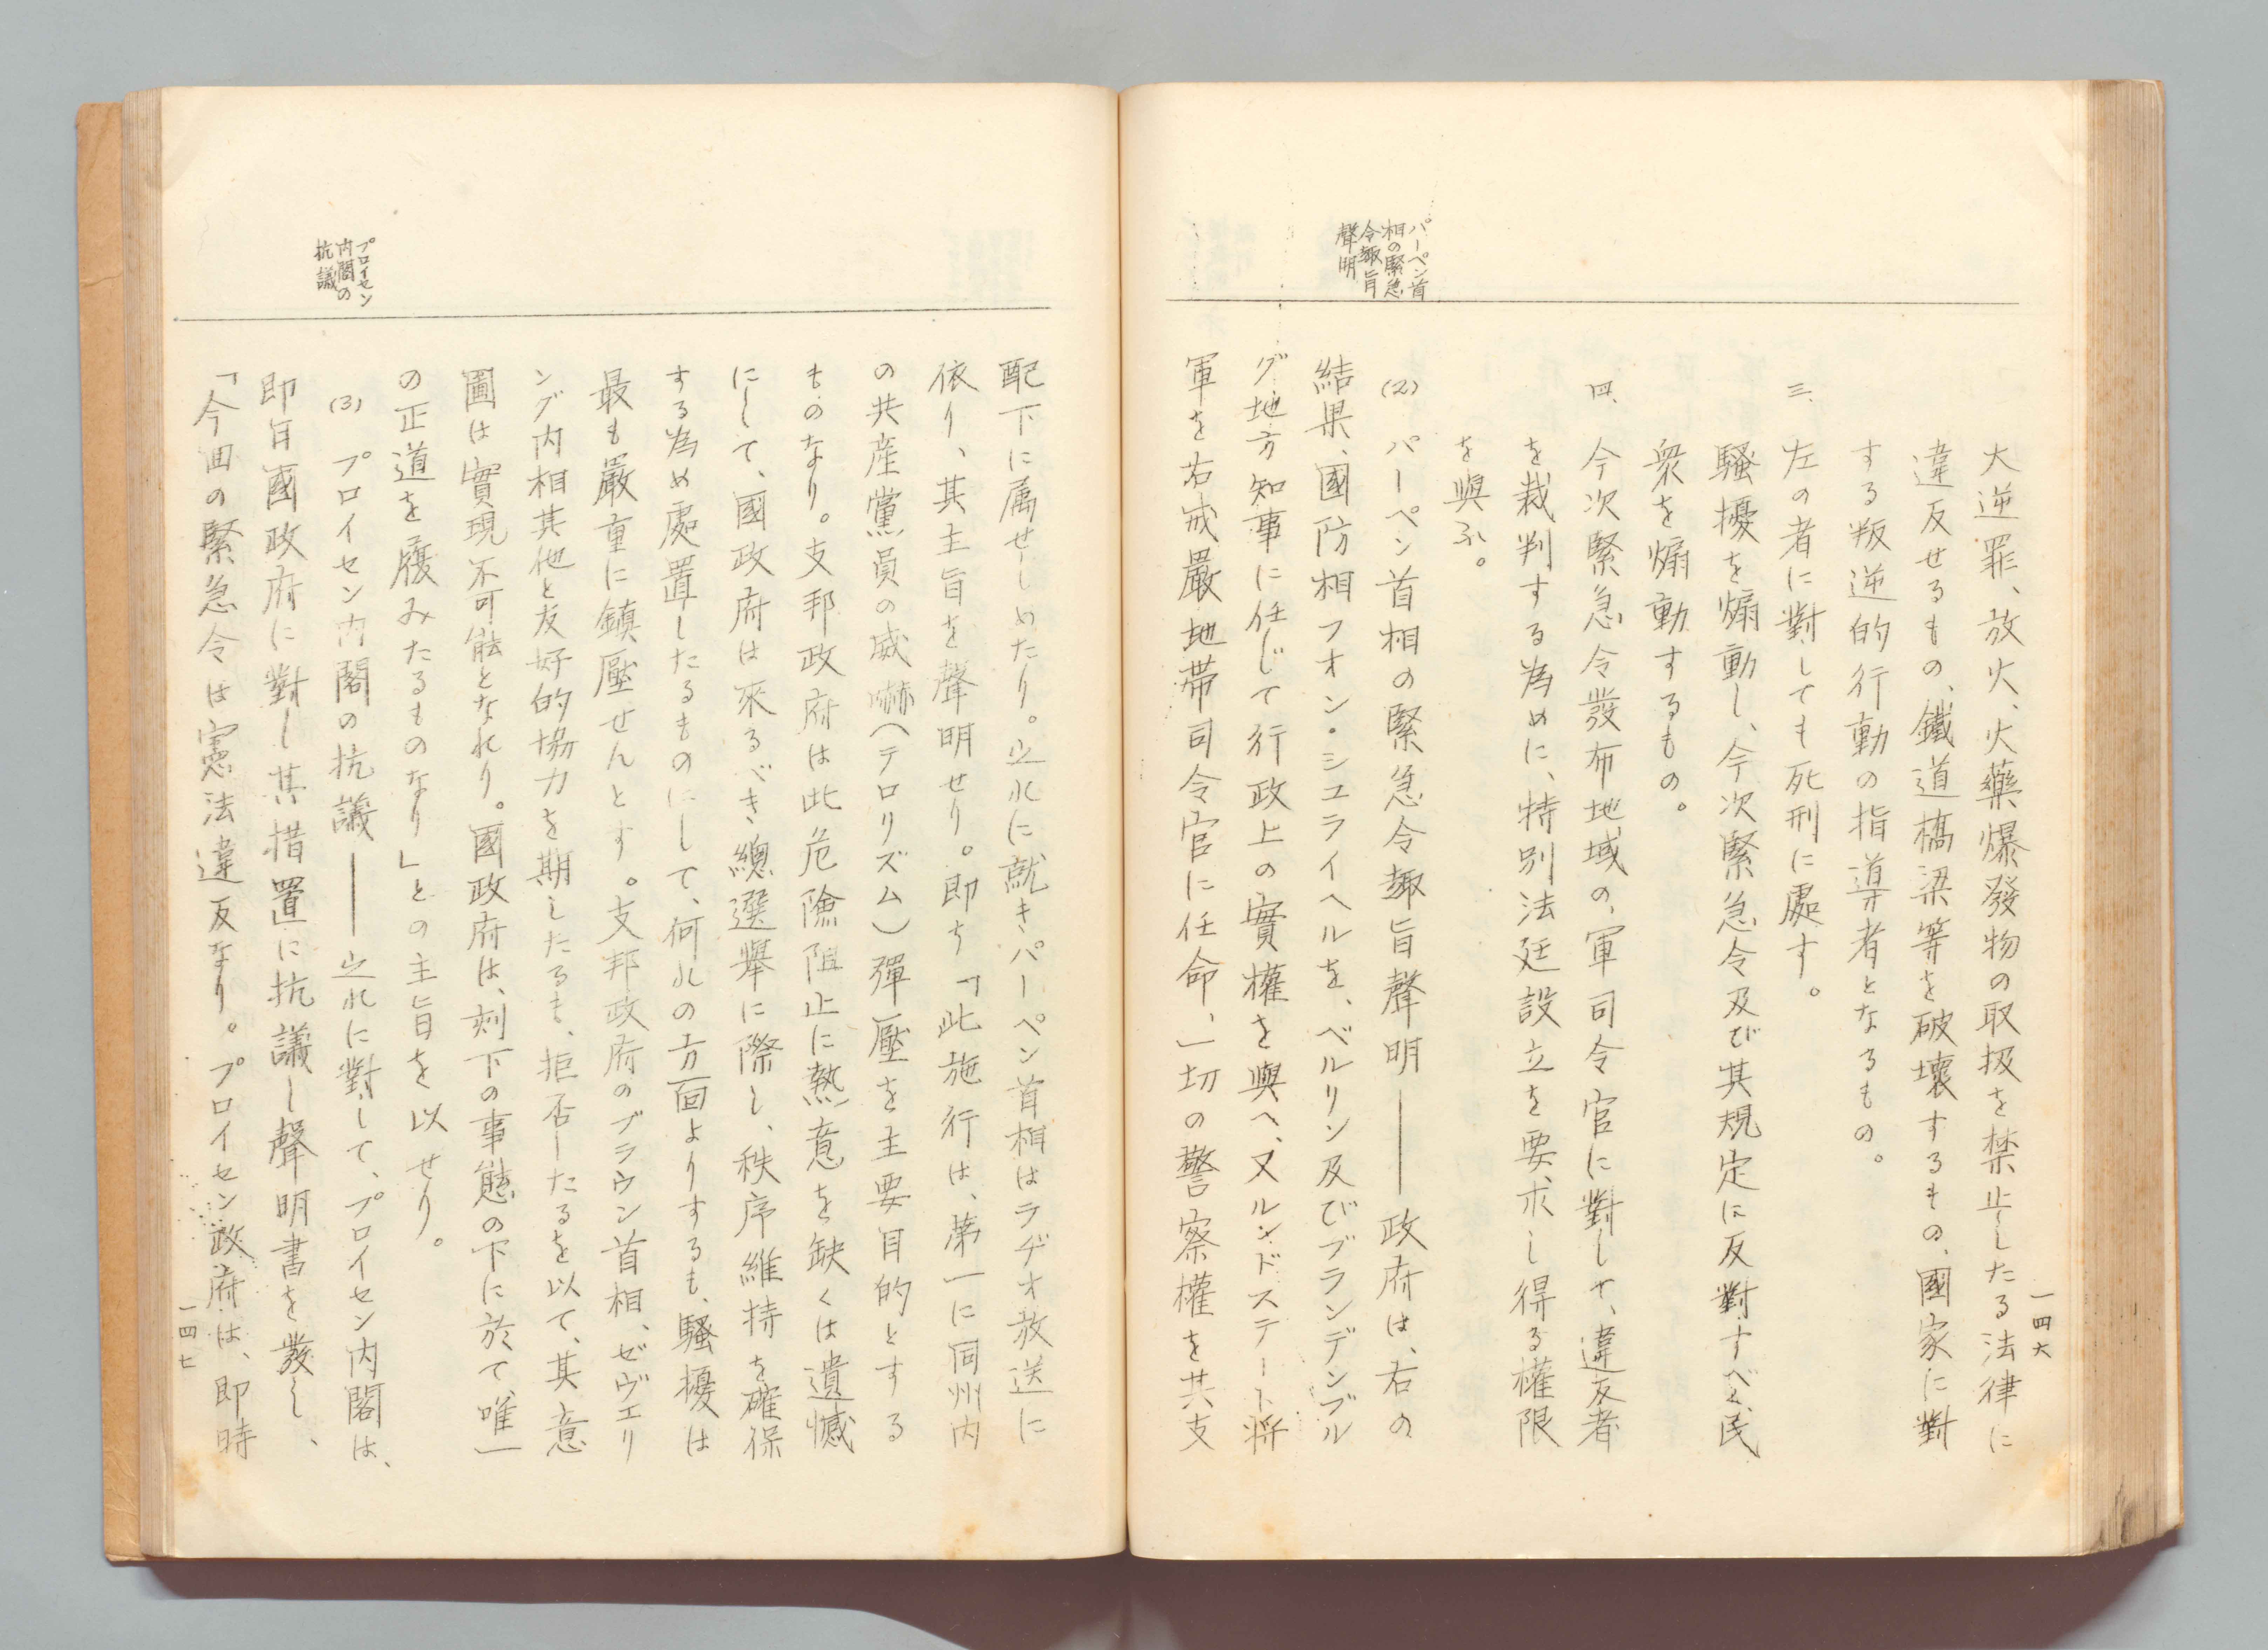 一四六
パーペン首
相の緊急
令趣旨
聲明
大逆罪、放火、火藥爆發物の取扱を禁止したる法律に
違反せるもの、鐵道橋梁等を破壞するもの、國家に對
する叛逆的行動の指導者となるもの。
三、左の者に對しても死刑に處す。
騷擾を煽動し、今次緊急令及び其規定に反對すべく民
衆を煽動するもの。
四、今次緊急令發布地域の軍司令官に對しせ、違反者
を裁判する為めに、特別法廷設立を要求し得る權限
を與ふ。
(2) パーペン首相の緊急令趣旨聲明――政府は、右の
結果、國防相フオン・シユライヘルを、ベルリン及びブランデンブル
グ地方知事に任じて行政上の實權を與へ、又ルンドステート將
軍を右戒嚴地帶司令官に任命、一切の警察權を其支
プロイセン
内閣の
抗議
配下に属せしめたり。之れに就きパーペン首相はラヂオ放送に
依り、其主旨を聲明せり。即ち「此施行は、第一に同州内
の共産黨員の威嚇(テロリズム)彈壓を主要目的とする
ものなり。支邦政府は此危險阻止に熱意を缺くは遺憾
にして、國政府は來るべき總選擧に際し、秩序維持を確保
する為め處置したるものにして、何れの方面よりするも、騷擾は
最も嚴重に鎮壓せんとす。支邦政府のブラウン首相、ゼヴェリ
ング内相其他と友好的協力を期したるも、拒否したるを以て、其意
圖は實現不可能となれり。國政府は、刻下の事態の下に於て唯一
の正道を履みたるものなり」との主旨を以せり。
(3) プロイセン内閣の抗議――之れに對して、プロイセン内閣は、
即日國政府に對し其措置に抗議し聲明書を發し、
「今回の緊急令は憲法違反なり。プロイセン政府は、即時
一四七